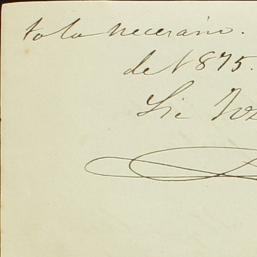 to lo necesario.
de 1875.
Lic